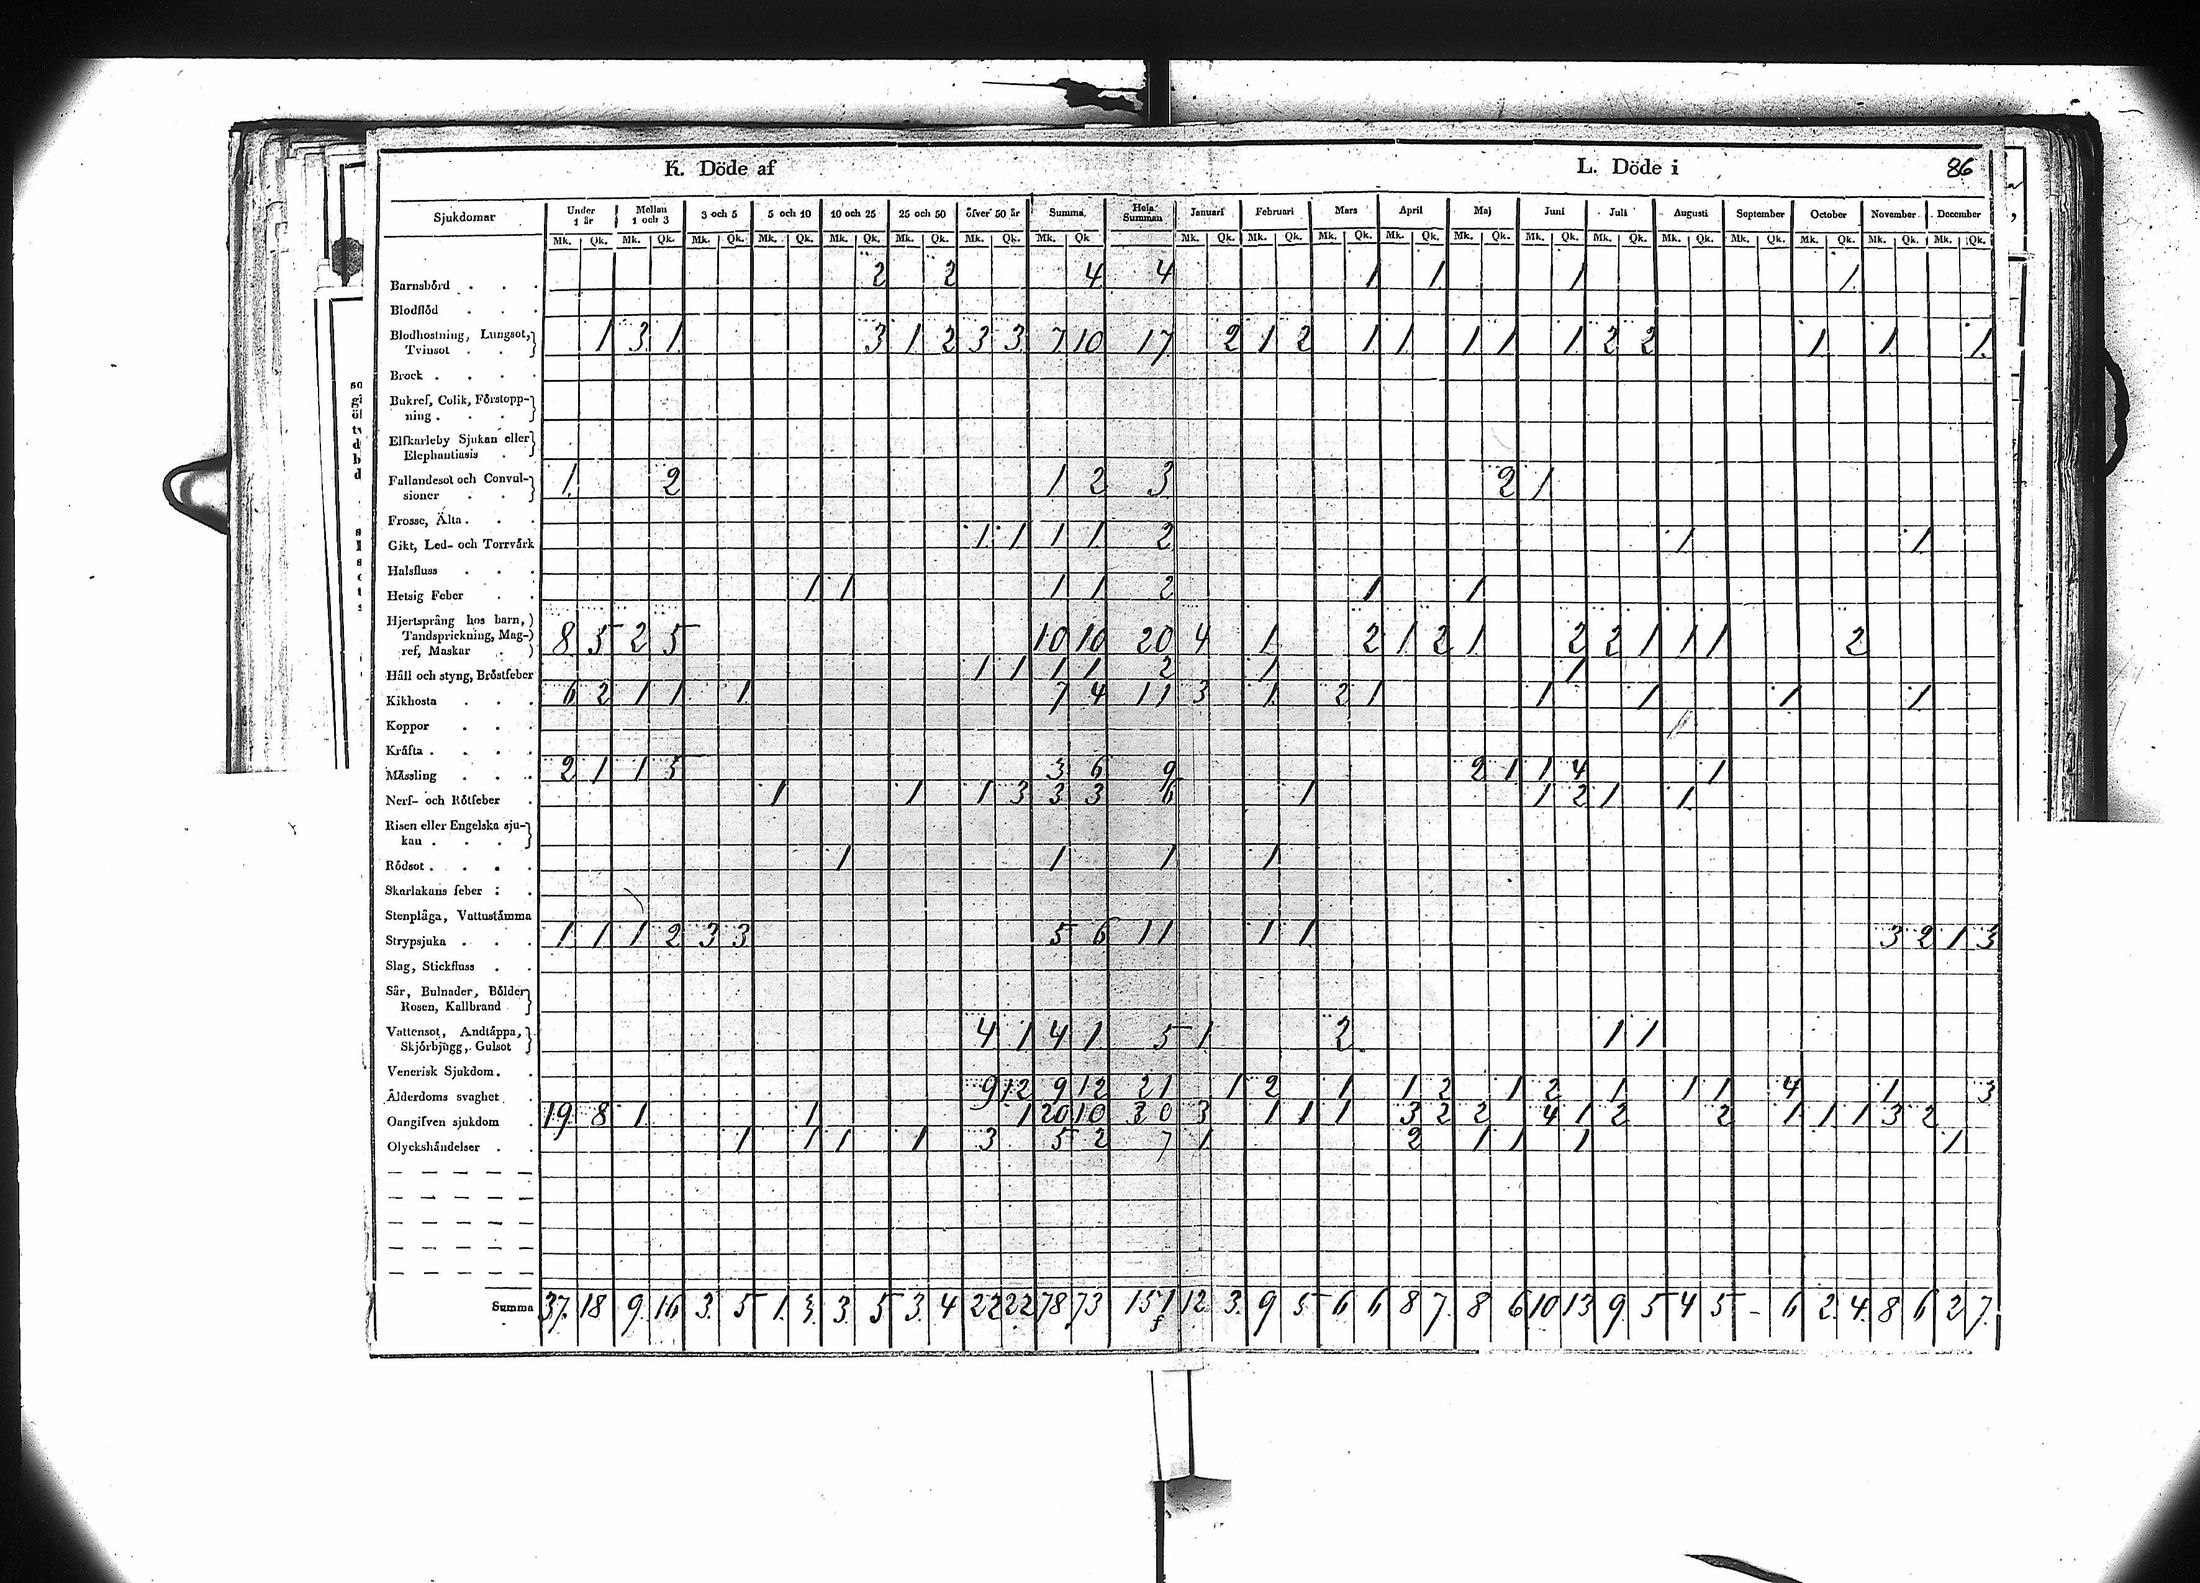 K. Döde af L. Döde i 86
Sjukdomar Under 1 år Mellan 1 och 3 3 och 5 5 och 10 10 och 25 25 och 50 öfver 50 år Summa. Hela Summan Januari Februari Mars April Maj Juni Juli Augusti September October November December
Mk. Qk. Mk. Qk. Mk. Qk. Mk. Qk. Mk. Qk. Mk. Qk. Mk. Qk. Mk. Qk Mk. Qk. Mk. Qk. Mk. Qk. Mk. Qk. Mk. Qk. Mk. Qk. Mk. Qk. Mk. Qk. Mk. Qk. Mk. Qk. Mk. Qk. Mk. Qk.
Barnsbörd . . . 2 2 4 4 1 1 1 1
Blodflöd . . .
Blodhostning, Lungsot,
Tvinsot . . 1 3 1 3 1 2 3 3 7 10 17 2 1 2 1 1 1 1 1 2 2 1 1 1
Brock . . . .
Bukref, Colik, Förstopp-
ning . . .
Elfkarleby Sjukan eller
Elephantiasis .
Fallandesot och Convul-
sioner . . 1 2 1 2 3 2 1
Frosse, Älta . . .
Gikt, Led- och Torrvärk 1 1 1 1 2 1 1
Halsfluss . . .
Hetsig Feber . . 1 1 1 1 2 1 1
Hjertsprång hos barn,
Tandsprickning, Mag-
ref, Maskar . 8 5 2 5 10 10 20 4 1 2 1 2 1 2 2 1 1 1 2
Håll och styng, Bröstfeber 1 1 1 1 2 1 1
Kikhosta . . . 6 2 1 1 1 7 4 11 3 1 2 1 1 1 1 1
Koppor . . .
Kräfta . . . .
Mässling . . . 2 1 1 5 3 6 9 2 1 1 4 1
Nerf- och Rötfeber . 1 1 1 3 3 3 6 1 1 2 1 1
Risen eller Engelska sju-
kan . . .
Rödsot . . . . 1 1 1 1
Skarlakans feber : .
Stenplåga, Vattustämma
Strypsjuka . . . 1 1 1 2 3 3 5 6 11 1 1 3 2 1 3
Slag, Stickfluss . .
Sår, Bulnader, Bölder
Rosen, Kallbrand
Vattensot, Andtäppa,
Skjörbjugg, Gulsot 4 1 4 1 5 1 2 1 1
Venerisk Sjukdom . .
Ålderdoms svaghet . 9 12 9 12 21 1 2 1 1 2 1 2 1 1 1 4 1 3
Oangifven sjukdom . 19 8 1 1 1 20 10 30 3 1 1 1 3 2 2 4 1 2 2 1 1 1 3 2
Olyckshändelser . . 1 1 1 1 3 5 2 7 1 2 1 1 1 1
Summa 37 18 9 16 3 5 1 3 3 5 3 4 22 22 78 73 151 12 3 9 5 6 6 8 7 8 6 10 13 9 5 4 5 - 6 2 4 8 6 2 7